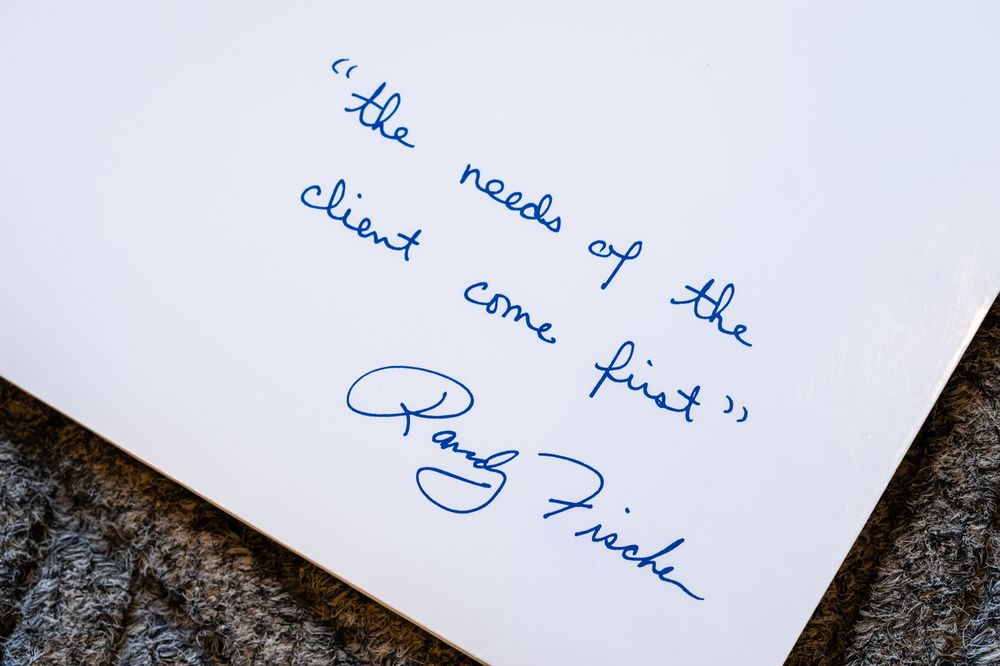 “the needs of the
client come first”
Randy Fischer